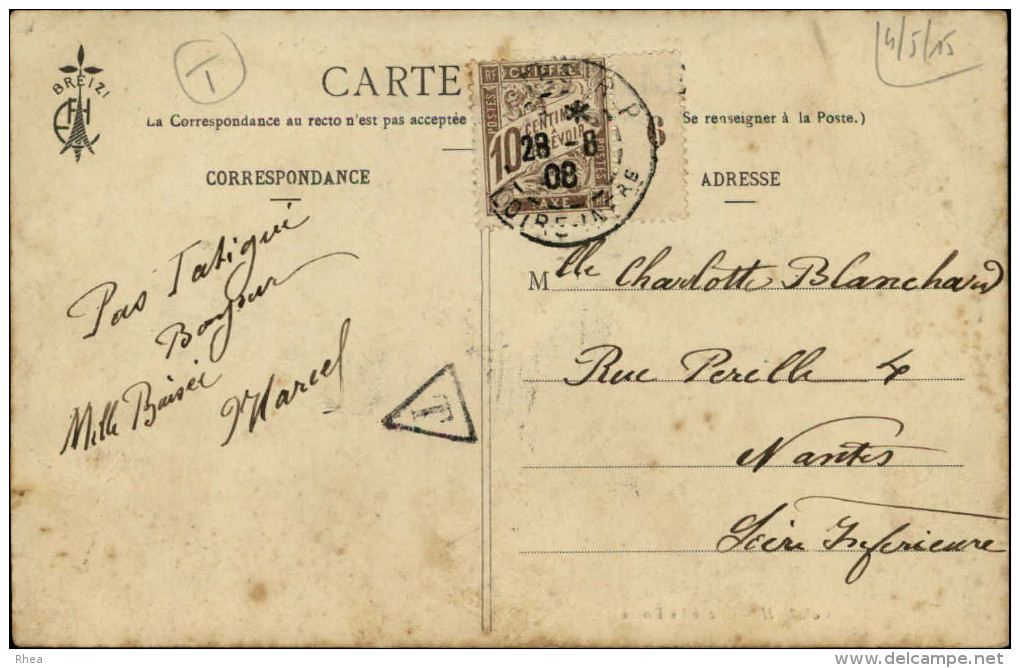 BREIZ!
T
4/5/15
CARTE
La Correspondance au recto n'est pas acceptée
Se renseigner à la Poste.)
RF CHIFFRE
POSTES
10
CENTIMES
À
POSTES
TAXE
28 -8
08
LOIRE-INFRE
R.P
6
CORRESPONDANCE
ADRESSE
Pas Fatigué
Bonjour
Mille Baisée
Marcel
T
Mlle Charlotte Blanchard
Rue Perelle 4
Nantes
Loire Inferieure
Rhea
www.delcampe.net